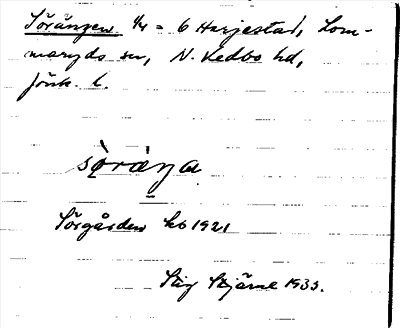 Sörängen 1/4 = 6 Harjestad, Lom-
maryds sn, N. Vedbo hd,
Jönk. l.
söräŋa
Sörgården kb 1921
Stig Stjärne 1933.